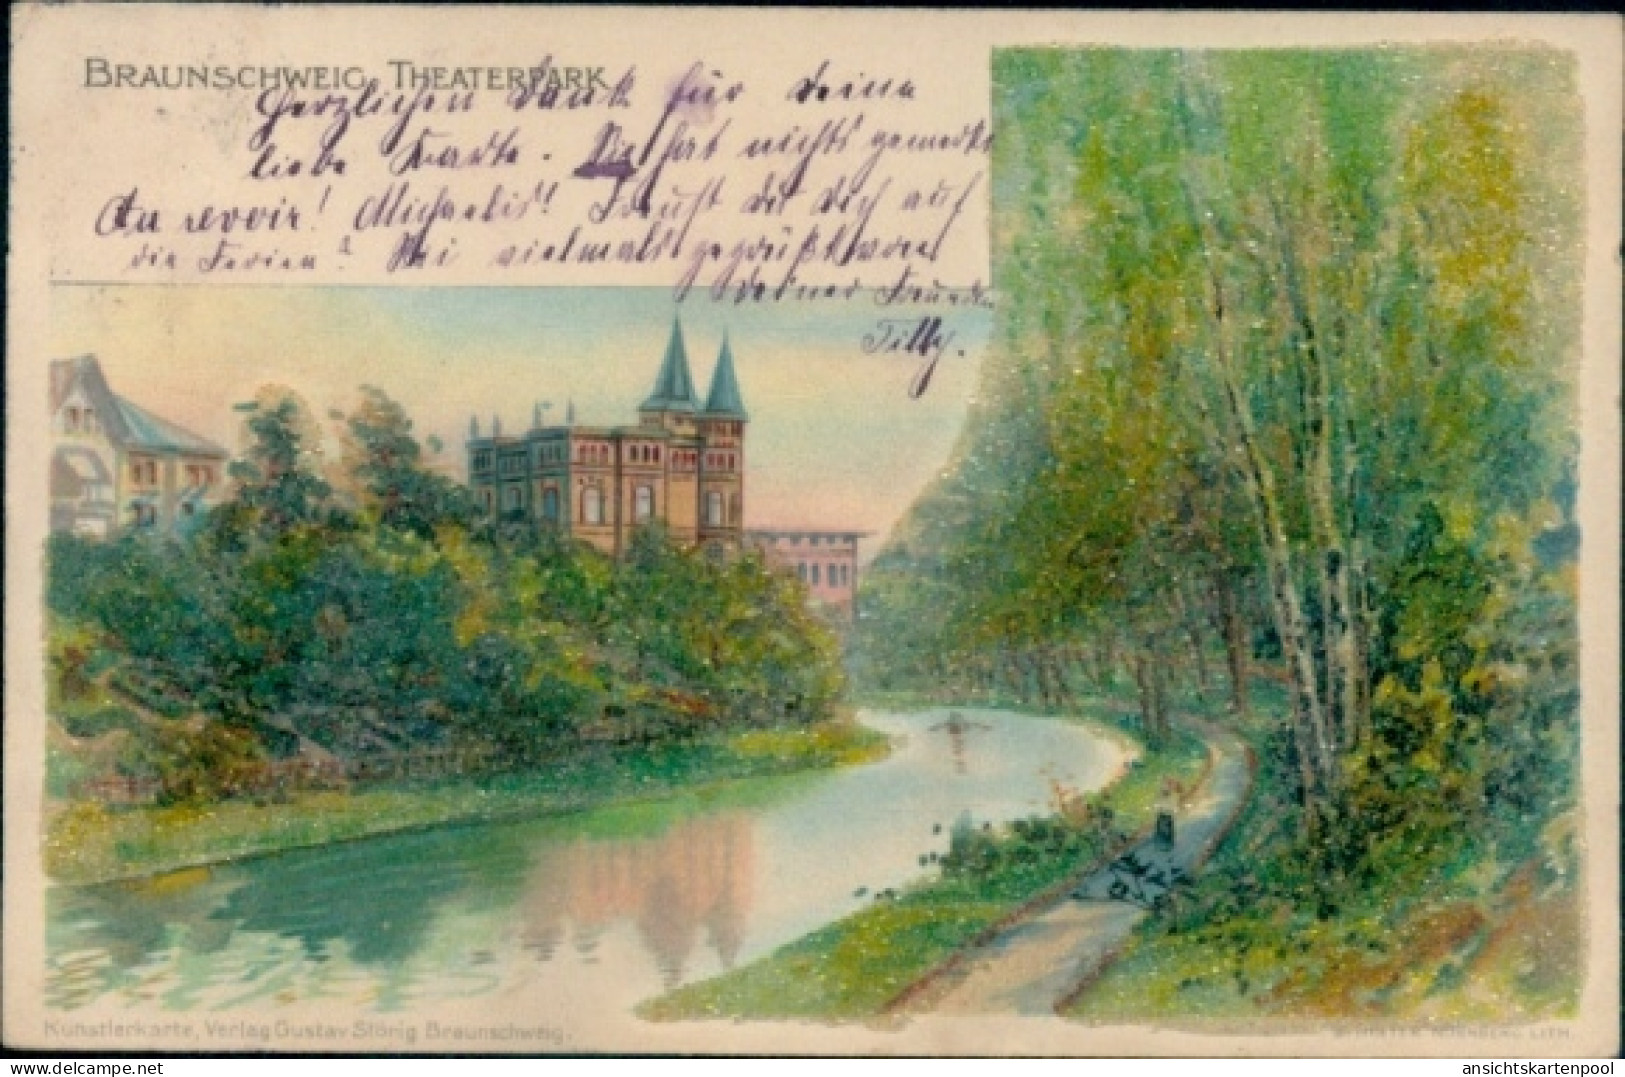 BRAUNSCHWEIG, THEATERPARK
Herzlichen Dank für deine
liebe Karte. Sie hat nichts gemerkt
Au revoir! Michaelis! Freust du dich auf
die Ferien? Sei vielmals gegrüßt von
deiner Freundin
Tilly.
Künstlerkarte, Verlag Gustav Störig Braunschweig.
NÜRNBERG LITH.
delcampe.net
ansichtskartenpool